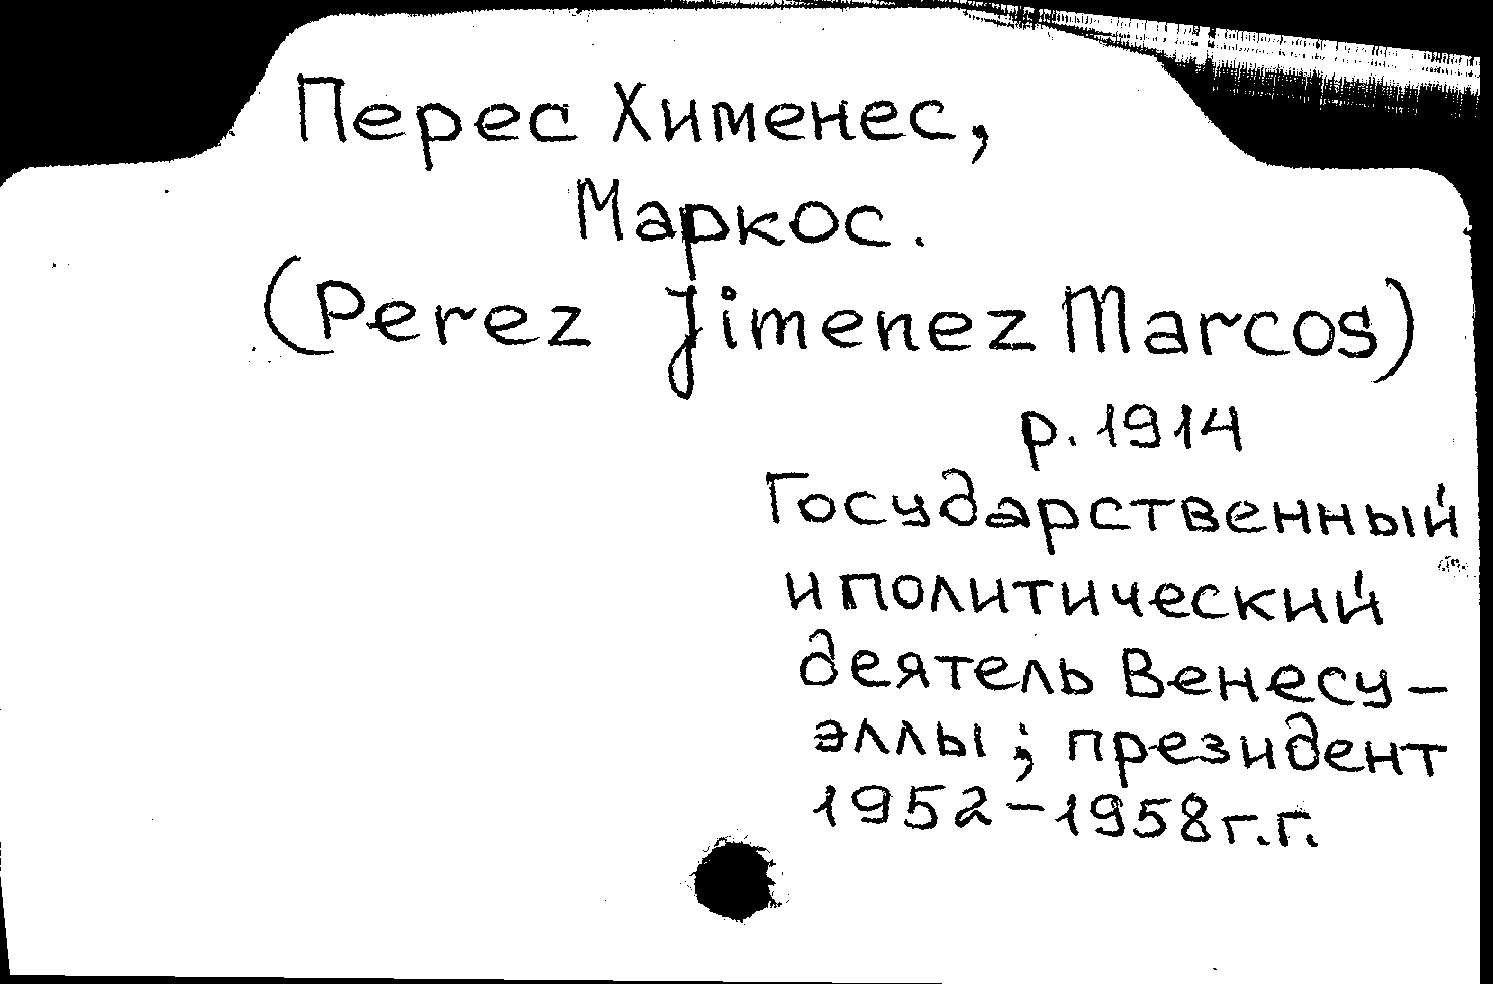 Перес Хименес,
Маркос.
(Perez Jimenez Marcos)
р. 1914
Государственный
и политический
деятель Венесу-
эллы; президент
1952-1958 г.г.